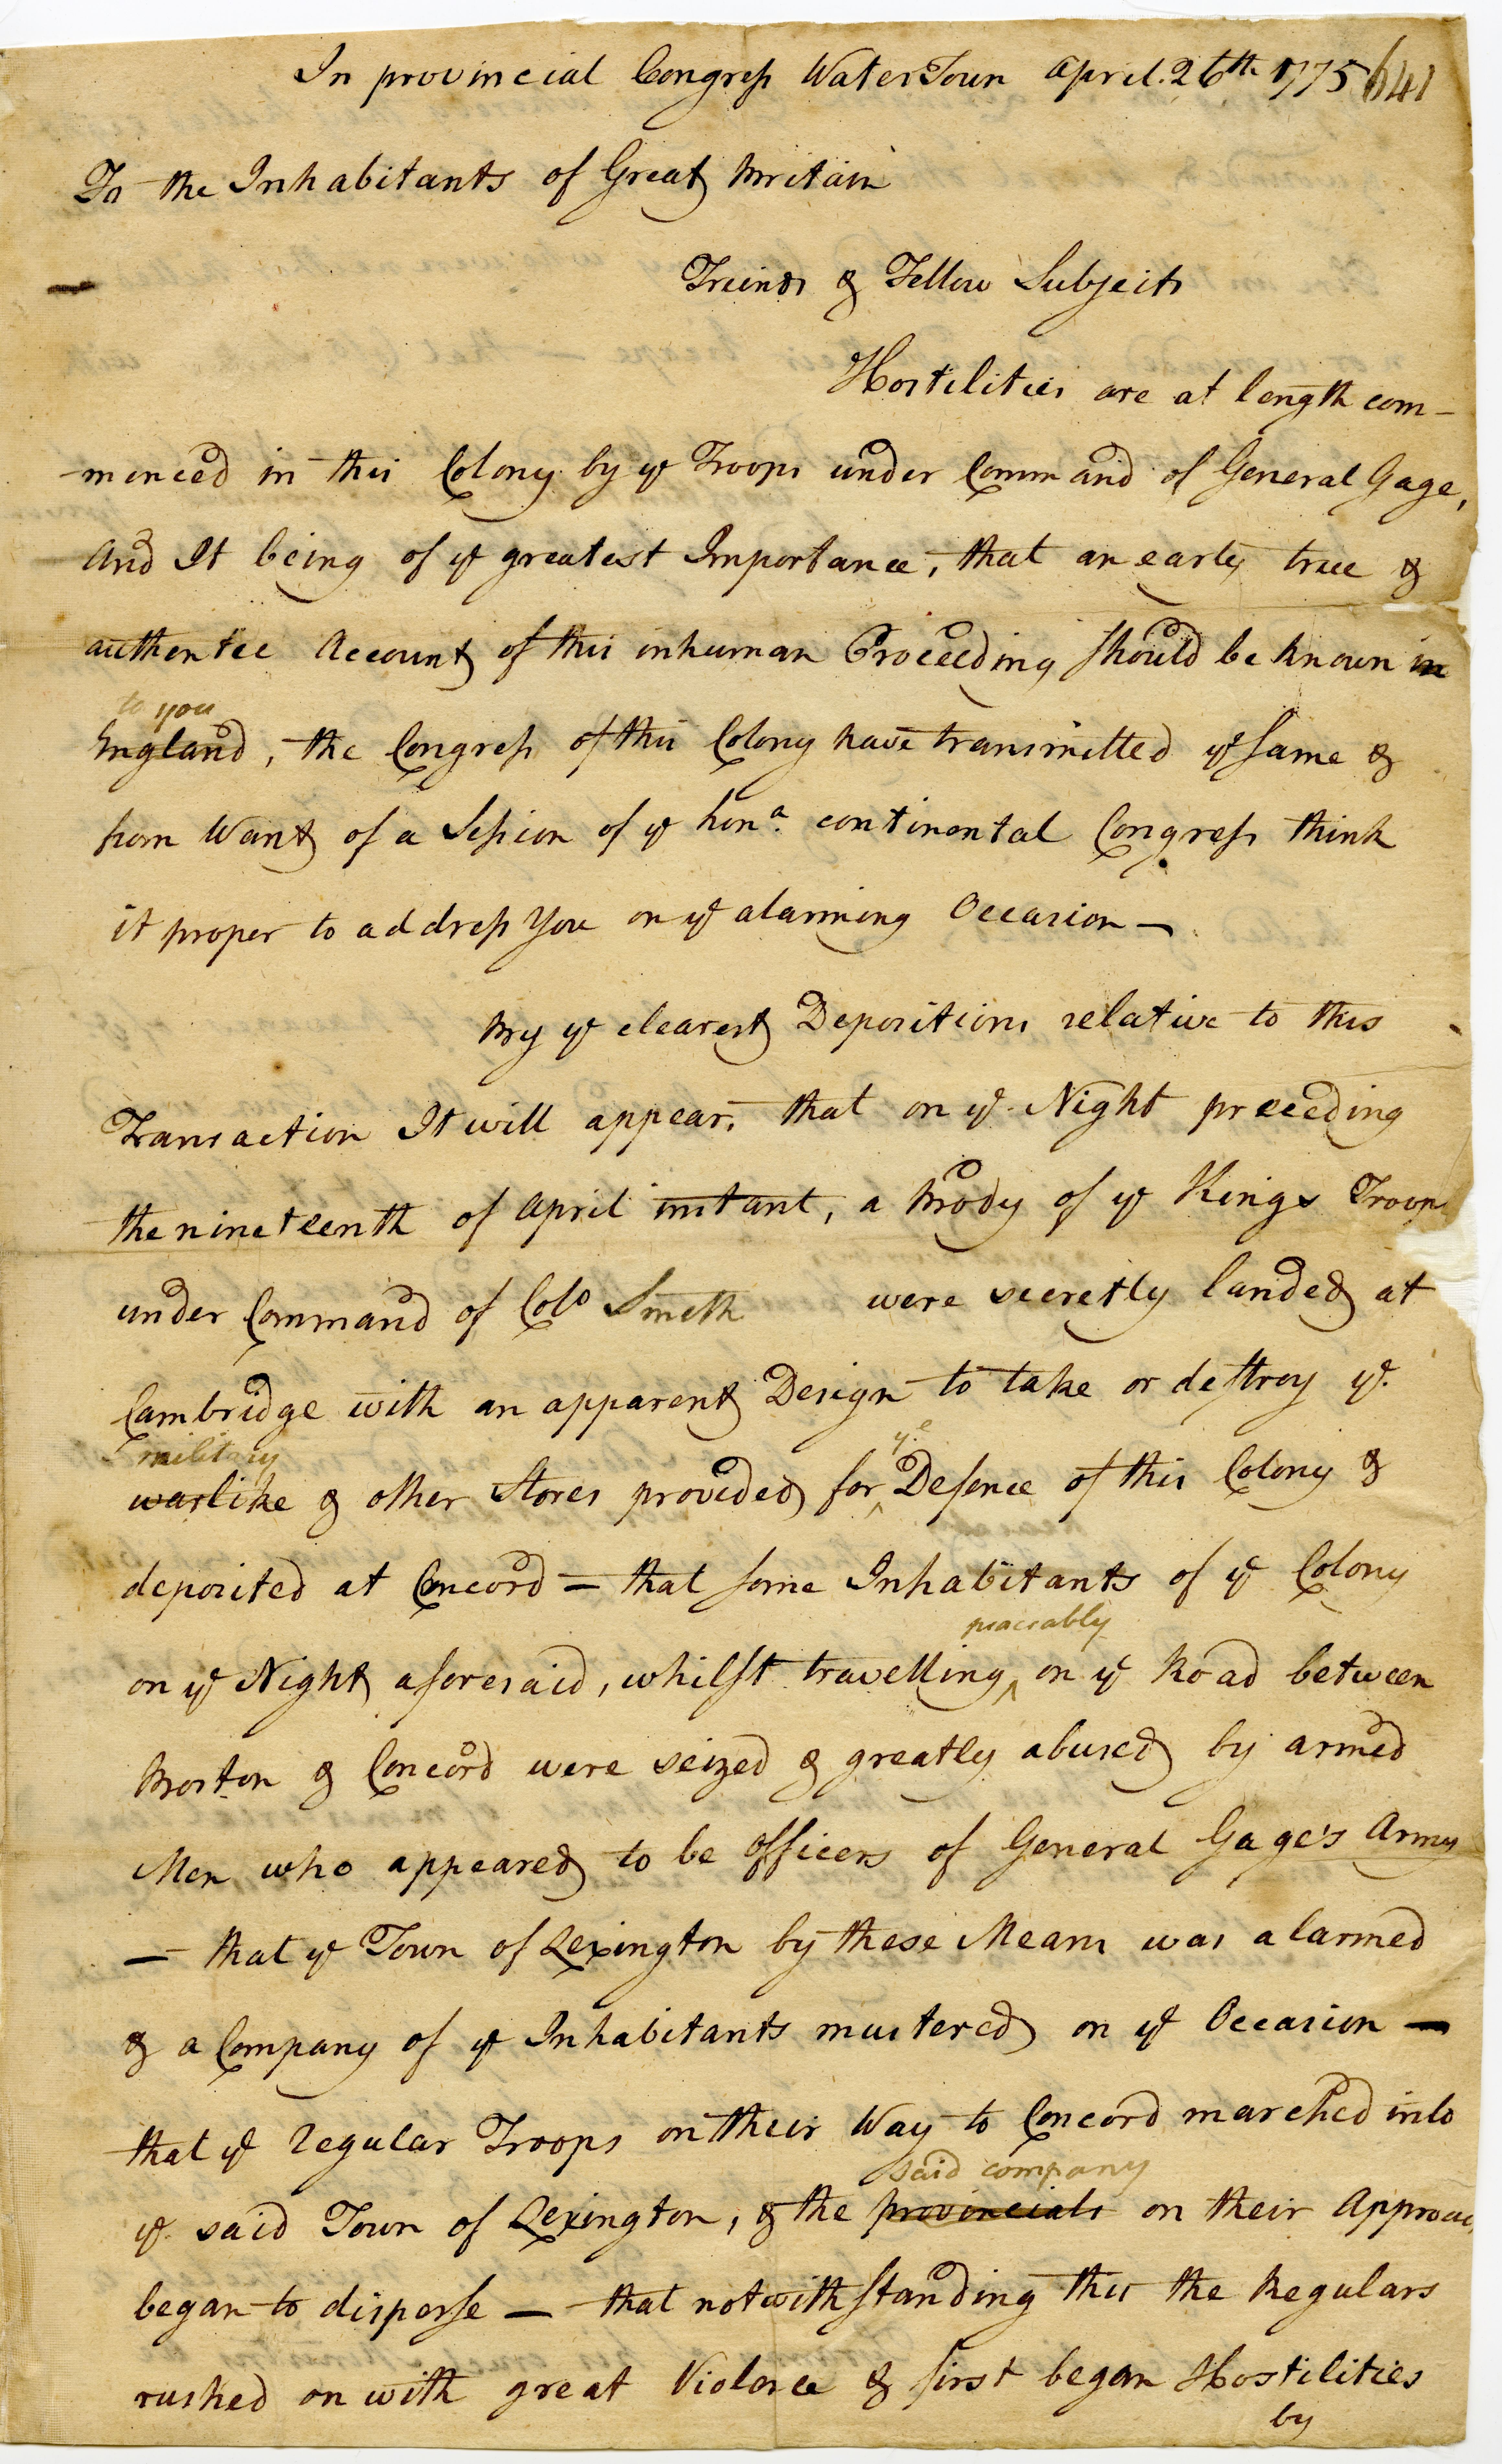 In provincial Congress WaterTown April. 26th 1775 641
To the Inhabitants of Great Britain
Freinds & Fellow Subjects
Hostilities are at length com-
-menced in this Colony by ye Troops under Command of General Gage,
And It being of ye greatest Importance, that an early true &
authentic Account of this inhuman Proceeding should be known in
to you
England, the Congress of this Colony have transmitted ye same &
from Want of a Session of ye hona. continental Congress think
it proper to address You on ye alarming Occasion —
By ye clearest Depositions relative to this
Transaction It will appear, that on ye Night preceeding
the nineteenth of April instant, a Body of ye Kings Troops
under Command of Colo Smith were secretly landed at
Cambridge with an apparent Design to take or destroy ye.
military ye
warlike & other Stores provided for Defence of this Colony &
deposited at Concord — that some Inhabitants of ye Colony
peaceably
on ye Night aforesaid, whilst travelling on ye Road between
Boston & Concord were seized & greatly abused by armed
Men who appeared to be Officers of General Gage's Army
— that ye Town of Lexington by these Means was alarmed
& a Company of ye Inhabitants mustered on ye Occasion —
that ye regular Troops on their Way to Concord marched into
said company
ye said Town of Lexington, & the provincials on their Approach
began to disperse — that notwithstanding this the Regulars
rushed on with great Violence & first began Hostilities
by